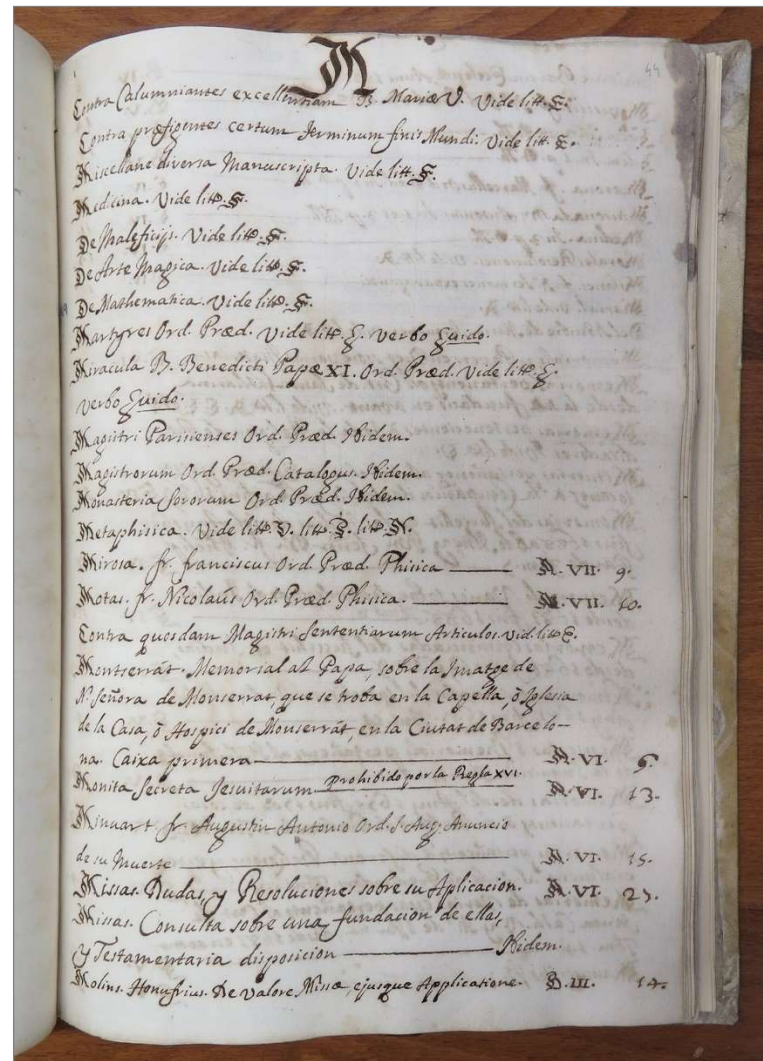 44
M
Contra Calumniantes excellentiam B. Mariæ V. Vide litt. C.
Contra præfigentes certum terminum finis Mundi. Vide litt. C.
Miscellane diversa Manuscripta. Vide litt. S.
Medicina. Vide litt. S.
De Maleficijs. Vide litt. S.
De Arte Magica. Vide litt. S.
De Mathematica. Vide litt. S.
Martyres Ord. Præd. Vide litt. G. verbo Guido.
Miracula B. Benedicti Papæ XI. Ord. Præd. Vide litt. G.
verbo Guido.
Magistri Parisienses Ord. Præd. Ibidem.
Magistrorum Ord. Præd. Catalogus. Ibidem.
Monasteria Sororum Ord. Præd. Ibidem.
Metaphisica. Vide litt. V. litt. P. litt. N.
Mirosa. fr. franciscus Ord. Præd. Phisica M. VII. 9.
Motas. fr. Nicolaüs Ord. Præd. Phisica. M. VII. 10.
Contra quosdam Magistri Sententiarum Articulos. vid. litt. C.
Montserrat. Memorial al Papa, sobre la Imatge de
Nª Señora de Monserrat, que se troba en la Capella, ò Iglesia
de la Casa, ò Hospici de Monserràt, en la Ciutat de Barcelo-
na. Caixa primera A. VI. 6.
Monita Secreta Jesuitarum Prohibido por la Regla XVI. A. VI. 13.
Minuart fr. Augustin Antonio Ord. S. Aug. Anuncio
de su Muerte A. VI. 15.
Missas. Dudas, y Resoluciones sobre su Aplicacion. A. VI. 23.
Missas. Consulta sobre una fundacion de ellas,
y Testamentaria disposicion Ibidem.
Molins. Honufrius. De Valore Missæ, ejusque Applicatione. B. III. 14.